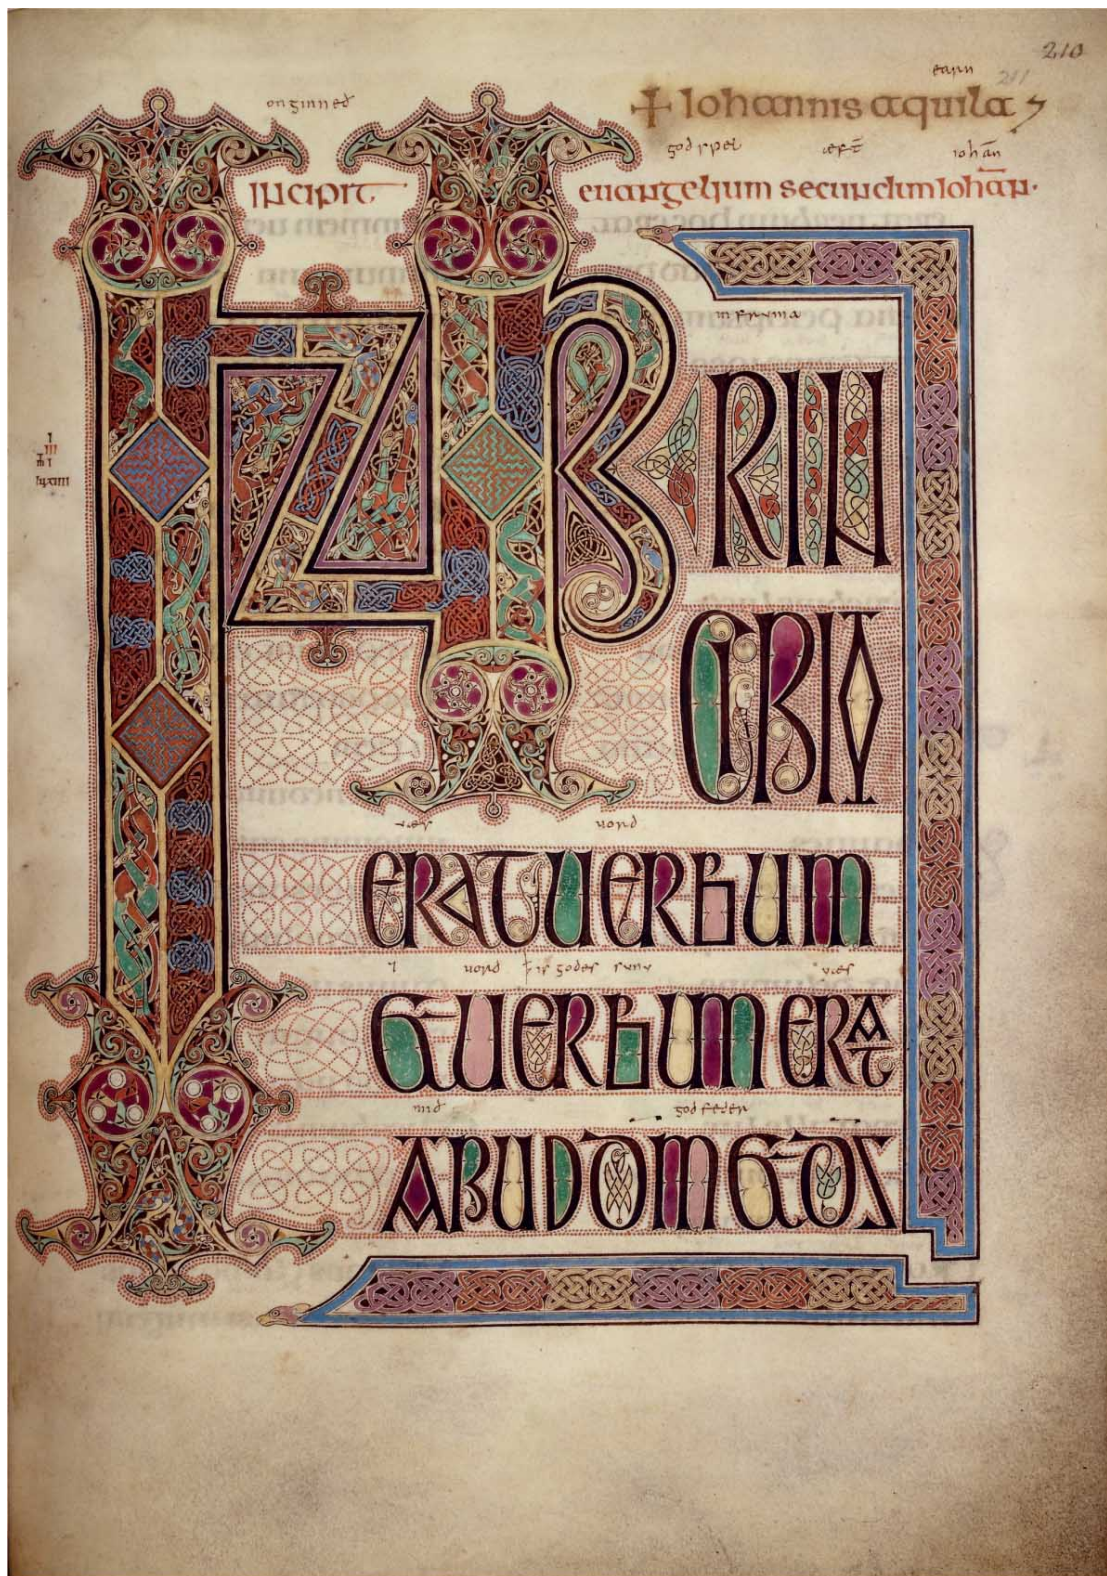 210
earn 211
onginneð + Iohannis aquila
godspel æft̄ iohān
Incipit euangelium secundum Iohān·
in fruma
INPRIN
CIPIO
væs uord
ERAT UERBUM
⁊ uord ꝥ is godes sunu væs
ET UERBUM ERAT
mid god feder
APUD DM̄ ET DS̄